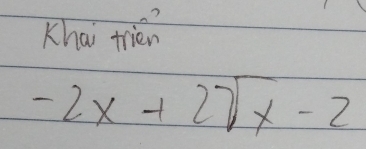 Khai triển
-2x + 27√x - 2